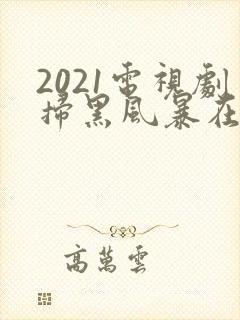 2021電視劇
掃黑風暴在
高萬雲